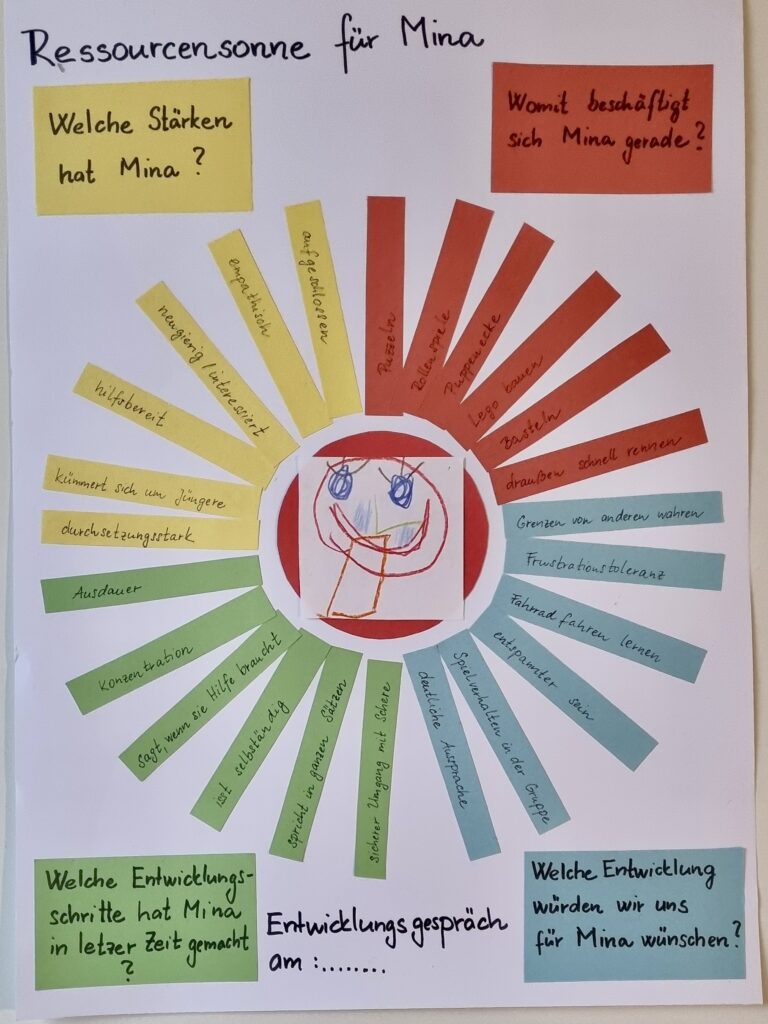 Ressourcensonne für Mina
Welche Stärken
hat Mina?
Womit beschäftigt
sich Mina gerade?
aufgeschlossen
empathisch
neugierig/interessiert
hilfsbereit
kümmert sich um Jüngere
durchsetzungsstark
Puzzeln
Rollenspiele
Puppenecke
Lego bauen
Basteln
draußen schnell rennen
Grenzen von anderen wahren
Frustrationstoleranz
Fahrrad fahren lernen
entspannter sein
Spielverhalten in der Gruppe
deutliche Aussprache
Ausdauer
Konzentration
sagt, wenn sie Hilfe braucht
isst selbständig
spricht in ganzen Sätzen
sicherer Umgang mit Schere
Welche Entwicklungs-
schritte hat Mina
in letzer Zeit gemacht
?
Entwicklungsgespräch
am :........
Welche Entwicklung
würden wir uns
für Mina wünschen?